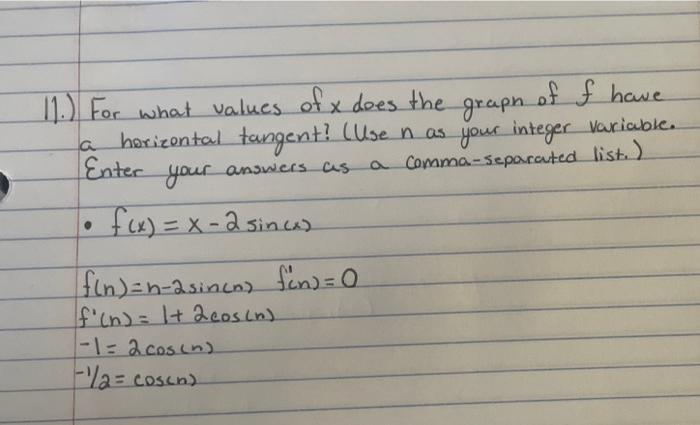 11.) For what values of x does the graph of f have
a horizontal tangent? (Use n as your integer variable.
Enter your answers as a comma-separated list.)
• f(x) = x - 2 sin(x)
f(n) = n - 2sin(n) f'(n) = 0
f'(n) = 1 + 2cos(n)
-1 = 2cos(n)
-1/2 = cos(n)